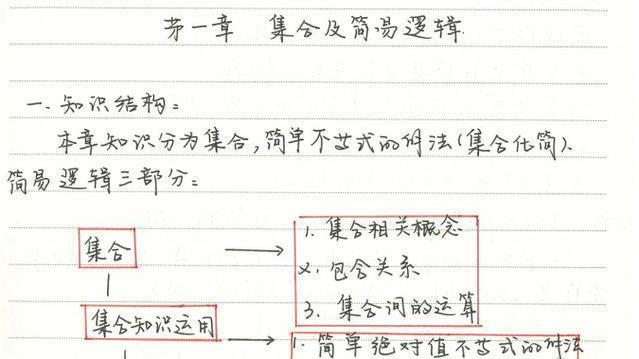 第一章 集合及简易逻辑
一.知识结构:
本章知识分为集合,简单不等式的解法(集合化简)、
简易逻辑三部分:
集合
1. 集合相关概念
2. 包含关系
3. 集合间的运算
集合知识运用
1. 简单绝对值不等式的解法